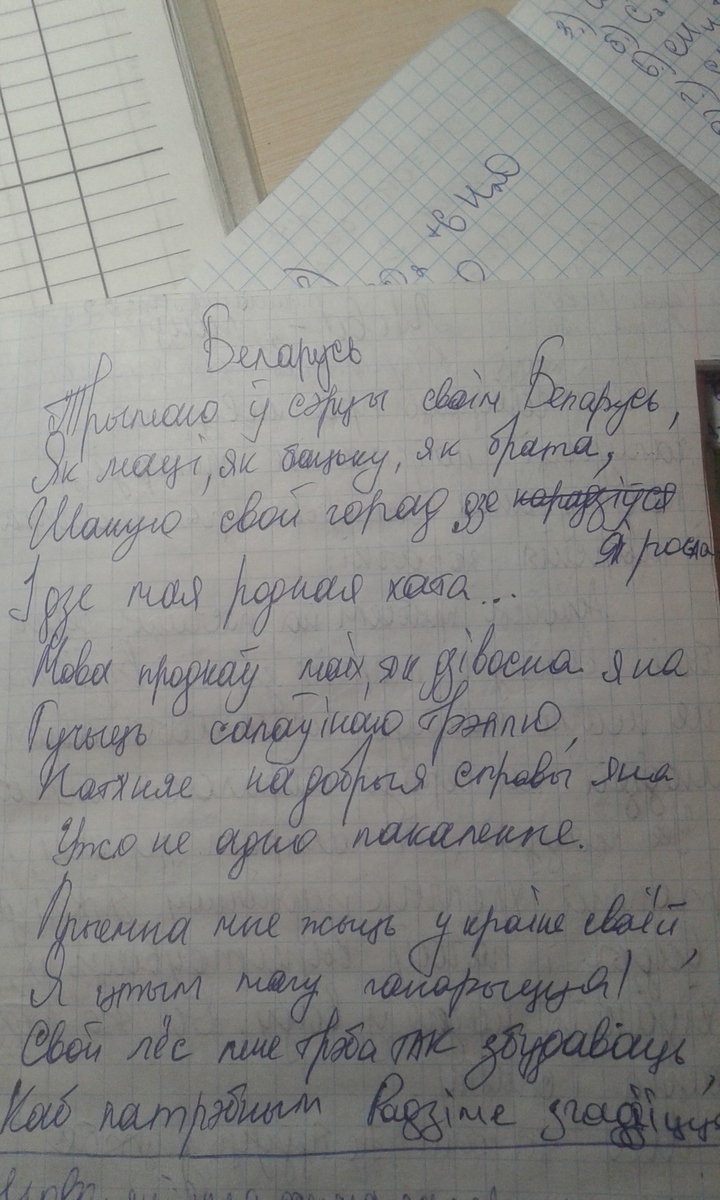 3.)
б)
в)
г)
+6 H₂O
2)
Беларусь
Трымаю ў сэрцы сваім Беларусь,
Як маці, як бацьку, як брата,
Шаную свой горад дзе нарадзіўся
я расла
І дзе мая родная хата...
Мова продкаў маіх, як дівосна яна
Гучыць салаўінаю трэллю,
Натхняе на добрыя справы яна
Ужо не адно пакаленне.
Прыемна мне жыць у краіне сваёй,
Я цтым магу ганарыцца!
Свой лёс мне трэба так збудаваць,
Каб патрэбным Радзіме згадзіцца